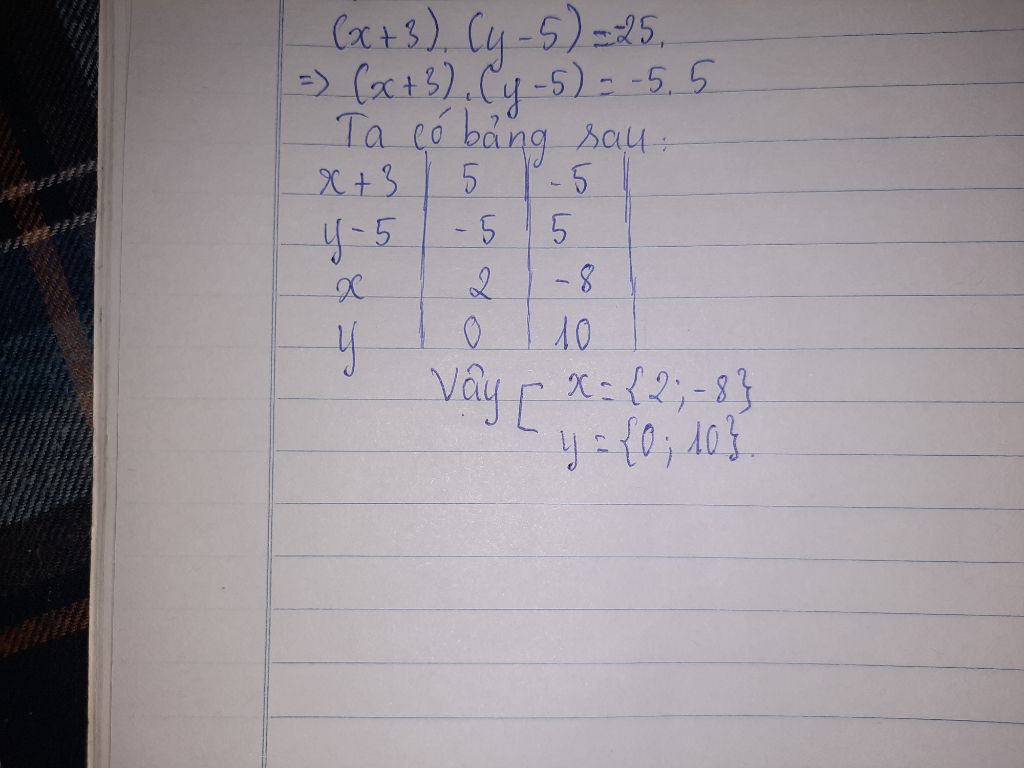 (x+3).(y-5)=-25.
=> (x+3).(y-5) = -5.5
Ta có bảng sau:
x+3 | 5 | -5 |
y-5 | -5 | 5 |
x | 2 | -8 |
y | 0 | 10 |
Vậy [ x={2;-8}
y={0;10}.